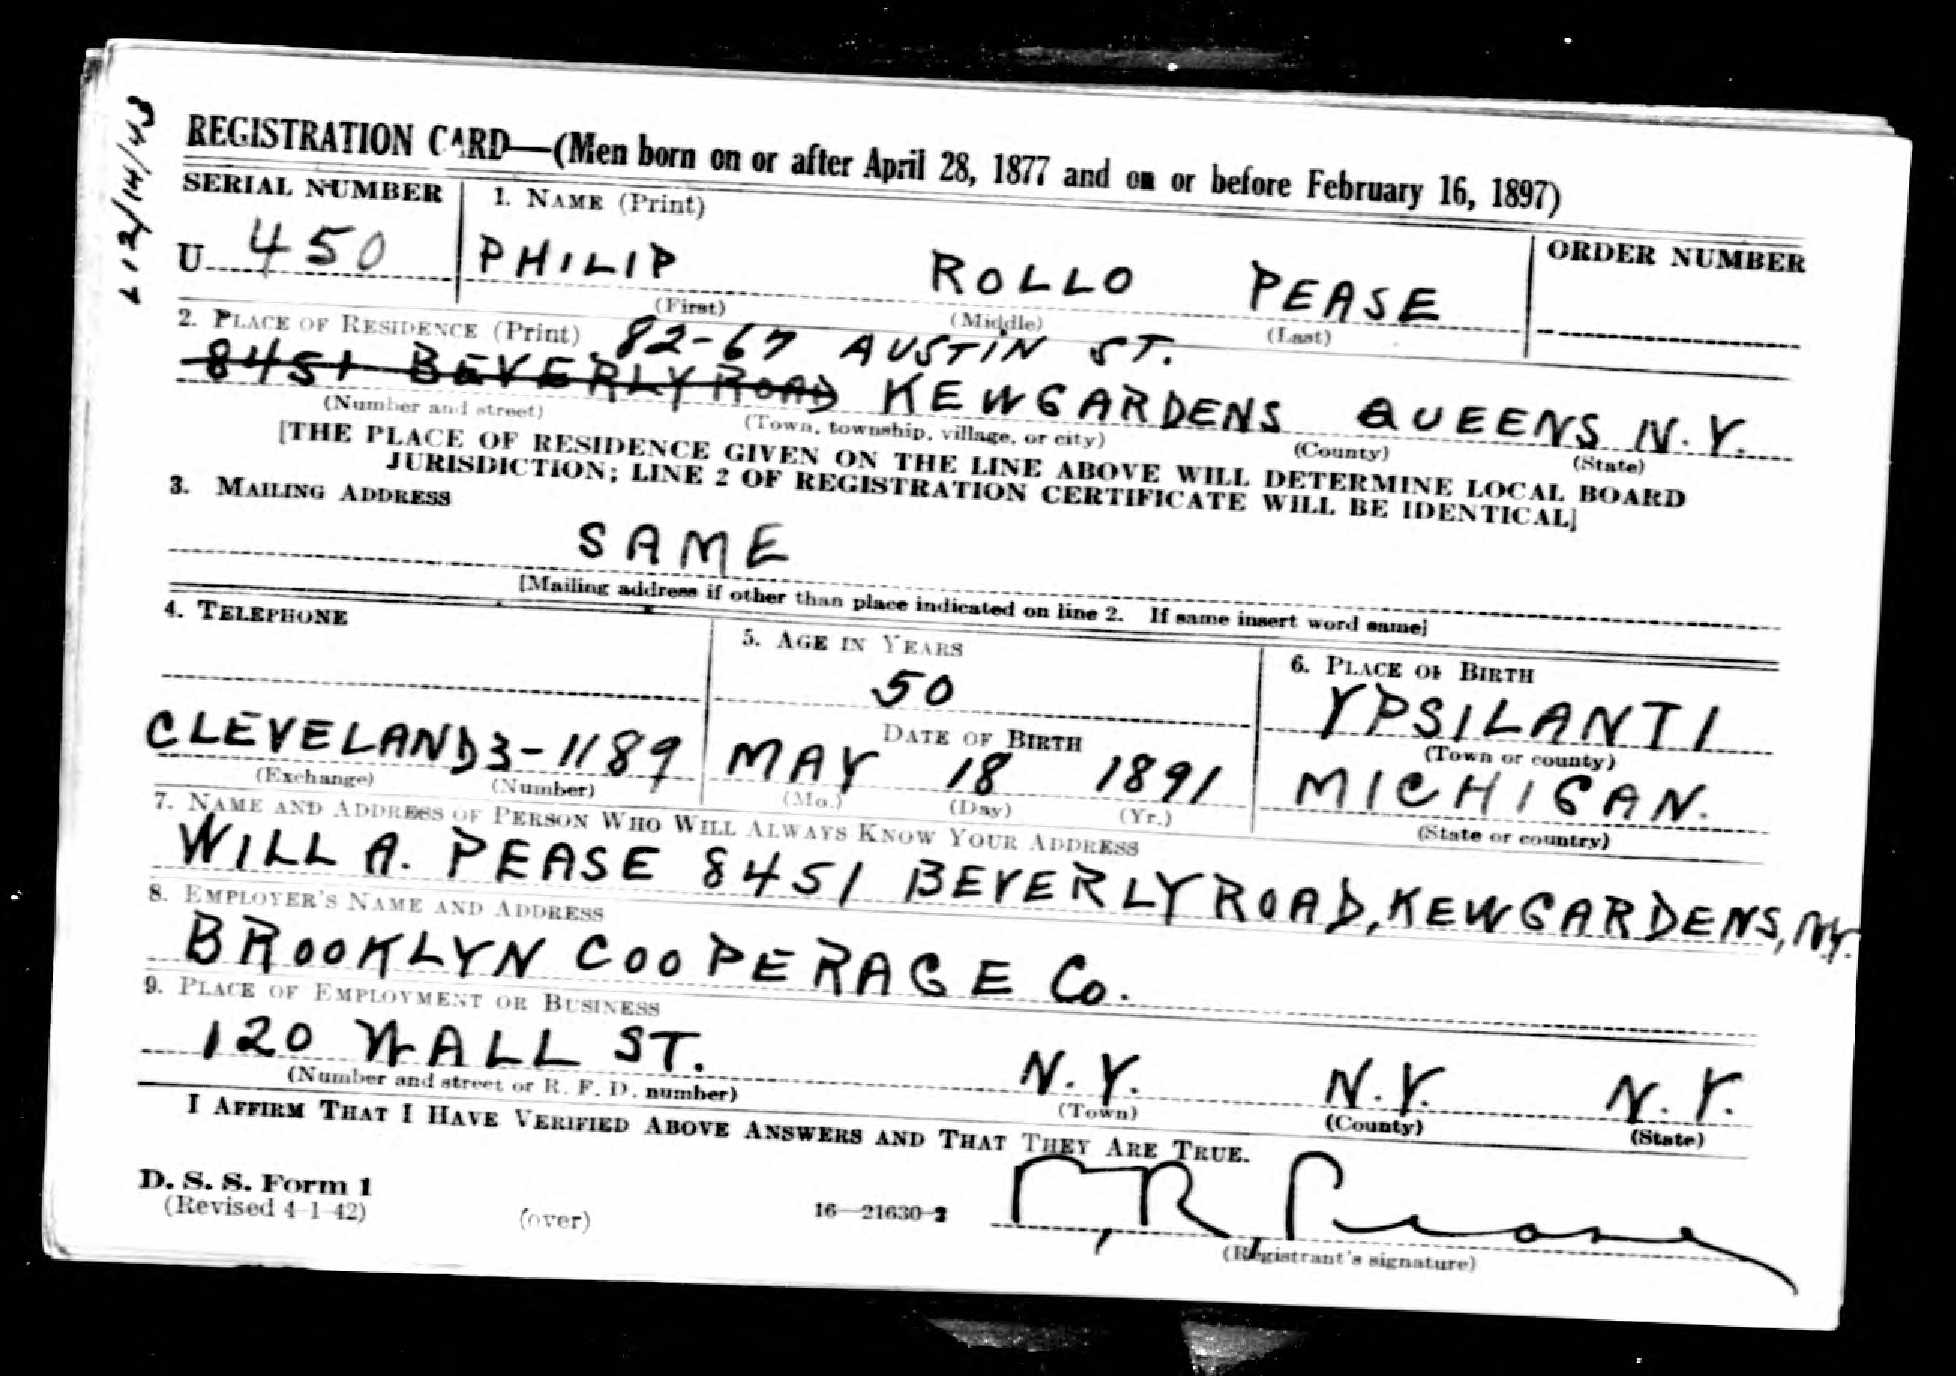 12/14/43
REGISTRATION CARD—(Men born on or after April 28, 1877 and on or before February 16, 1897)
SERIAL NUMBER 1. NAME (Print) ORDER NUMBER
U 450 PHILIP ROLLO PEASE
(First) (Middle) (Last)
2. PLACE OF RESIDENCE (Print) 82-67 AUSTIN ST.
8451 BEVERLY ROAD KEW GARDENS QUEENS N.Y.
(Number and street) (Town, township, village, or city) (County) (State)
[THE PLACE OF RESIDENCE GIVEN ON THE LINE ABOVE WILL DETERMINE LOCAL BOARD
JURISDICTION; LINE 2 OF REGISTRATION CERTIFICATE WILL BE IDENTICAL]
3. MAILING ADDRESS
SAME
[Mailing address if other than place indicated on line 2. If same insert word same]
4. TELEPHONE 5. AGE IN YEARS 6. PLACE OF BIRTH
50 YPSILANTI
DATE OF BIRTH (Town or county)
CLEVELAND 3-1189 MAY 18 1891 MICHIGAN.
(Exchange) (Number) (Mo.) (Day) (Yr.) (State or country)
7. NAME AND ADDRESS OF PERSON WHO WILL ALWAYS KNOW YOUR ADDRESS
WILL A. PEASE 8451 BEVERLY ROAD, KEW GARDENS, N.Y.
8. EMPLOYER'S NAME AND ADDRESS
BROOKLYN COOPERAGE Co.
9. PLACE OF EMPLOYMENT OR BUSINESS
120 WALL ST. N.Y. N.Y. N.Y.
(Number and street or R. F. D. number) (Town) (County) (State)
I AFFIRM THAT I HAVE VERIFIED ABOVE ANSWERS AND THAT THEY ARE TRUE.
D. S. S. Form 1
(Revised 4-1-42) (over) 16—21630-2 P. R. Pease
(Registrant's signature)